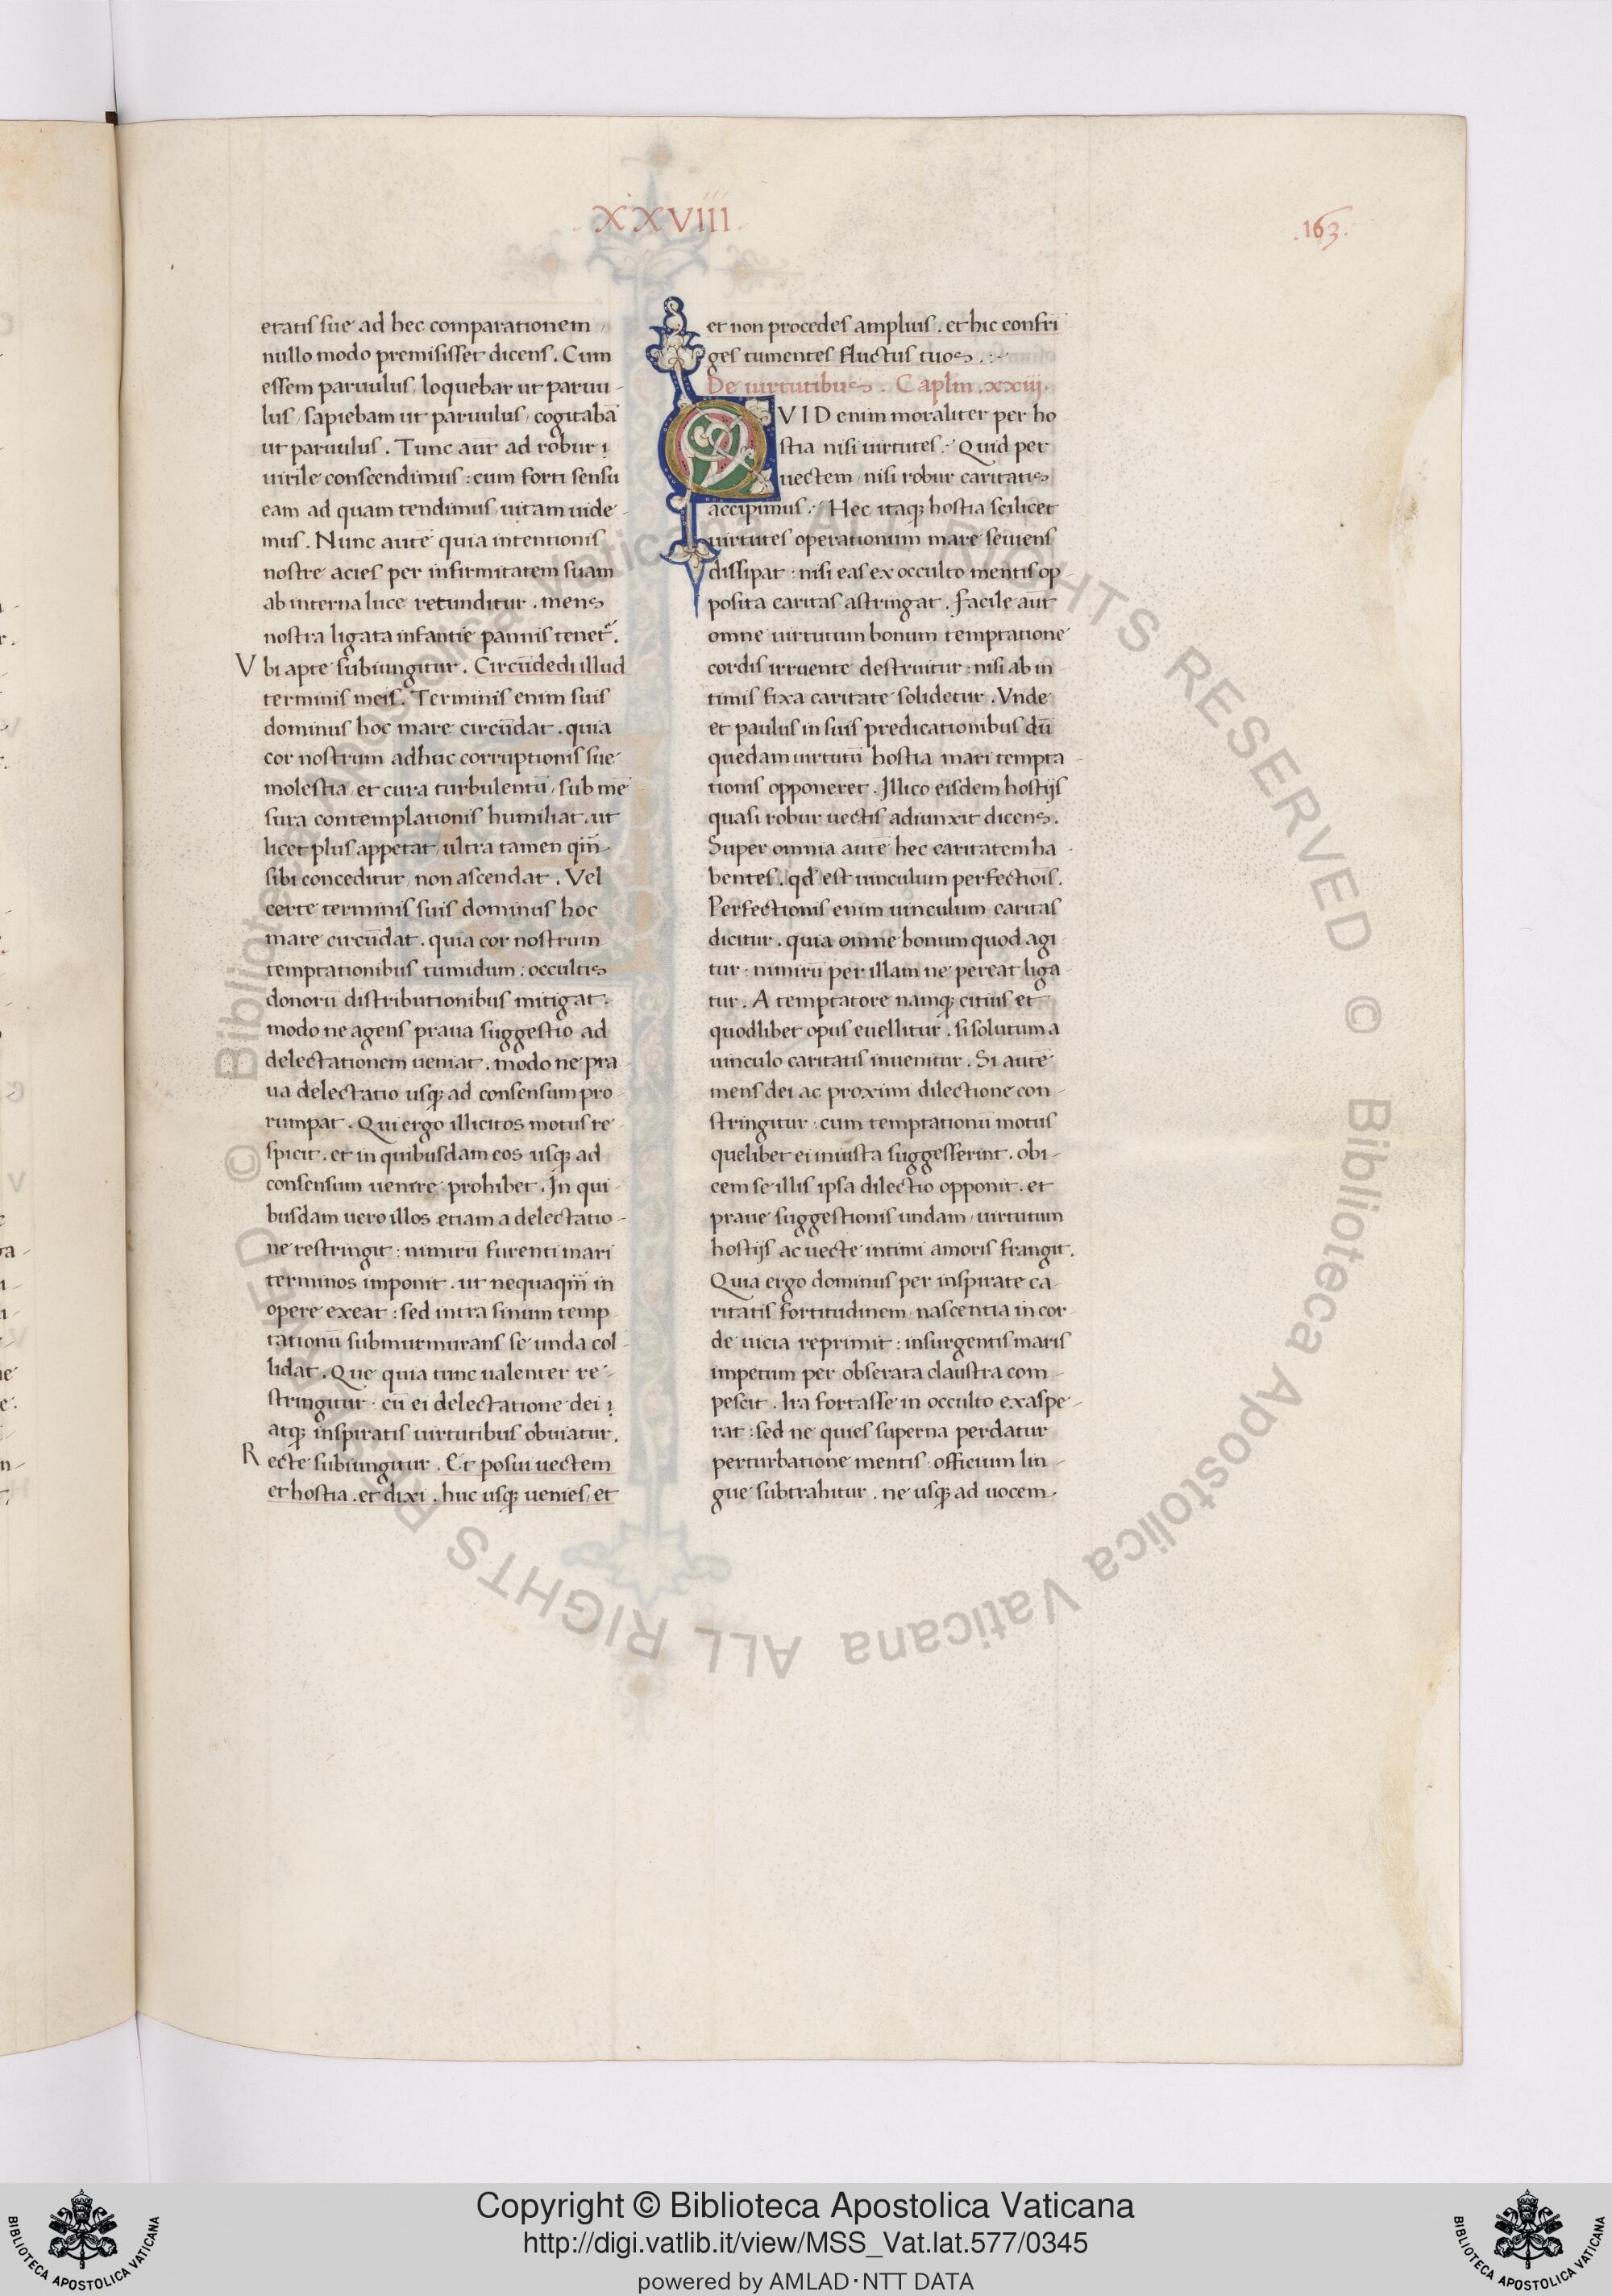 XXVIII
.163.
etatis sue ad hec comparationem
nullo modo premisisset dicens. Cum
essem paruulus, loquebar ut paruu-
lus, sapiebam ut paruulus, cogitabā
ut paruulus. Tunc aūt ad robur
uirile conscendimus: cum forti sensu
eam ad quam tendimus, uitam uide-
mus. Nunc autē quia intentionis
nostre acies per infirmitatem suam
ab interna luce retunditur. mens
nostra ligata infantie pannis tenet̄.
Vbi apte subiungitur. Circūdedi illud
terminis meis. Terminis enim suis
dominus hoc mare circūdat. quia
cor nostrum adhuc corruptionis sue
molestia, et cura turbulentū, sub mē
sura contemplationis humiliat. ut
licet plus appetat, ultra tamen qm̄-
sibi conceditur, non ascendat. Vel
certe terminis suis dominus hoc
mare circūdat. quia cor nostrum
temptationibus tumidum: occultis
donorū distributionibus mitigat.
modo ne agens praua suggestio ad
delectationem ueniat. modo ne pra
ua delectatio usqȝ ad consensum pro-
rumpat. Qui ergo illicitos motus re-
spicit. et in quibusdam eos usqȝ ad
consensum uenire prohibet. In qui-
busdam uero illos etiam a delectatio-
ne restringit: nimirū furenti mari
terminos imponit. ut nequaqm̄ in
opere exeat: sed intra sinum temp
tationū submurmurans se unda col-
lidat. Que quia tunc ualenter re-
stringitur: cū ei delectatione dei
atqȝ inspiratis uirtutibus obuiatur.
Recte subiungitur. Et posui uectem
et hostia. et dixi. huc usqȝ uenies, et
et non procedes amplius. et hic confrī
ges tumentes fluctus tuos.:-
De uirtutibus. Caplm̄. xxiij.
QVID enim moraliter per ho
stia nisi uirtutes? Quid per
uectem, nisi robur caritatis
accipimus? Hec itaqȝ hostia scilicet
uirtutes operationum mare seuiens
dissipat: nisi eas ex occulto mentis op-
posita caritas astringat. Facile aūt
omne uirtutum bonum temptatione
cordis irruente destruitur: nisi ab in
timis fixa caritate solidetur. Vnde
et paulus in suis predicationibus dū
quedam uirtutū hostia mari tempta-
tionis opponeret. Illico eisdem hostijs
quasi robur uectis adiunxit dicens.
Super omnia autē hec caritatem ha-
bentes. qd̄ est uinculum perfectiōis.
Perfectionis enim uinculum caritas
dicitur. quia omne bonum quod agi
tur: nimirū per illam ne pereat liga-
tur. A temptatore namqȝ citius et
quodlibet opus euellitur. si solutum a
uinculo caritatis inuenitur. Si autē
mens dei ac proximi dilectione con-
stringitur: cum temptationū motus
quelibet ei iniusta suggesserint. obi-
cem se illis ipsa dilectio opponit. et
praue suggestionis undam, uirtutum
hostijs ac uecte intimi amoris frangit.
Quia ergo dominus per inspirate ca-
ritatis fortitudinem, nascentia in cor-
de uicia reprimit: insurgentis maris
impetum per obserata claustra com-
pescit. Ira fortasse in occulto exaspe-
rat: sed ne quies superna perdatur
perturbatione mentis: officium lin-
gue subtrahitur. ne usqȝ ad uocem
© Biblioteca Apostolica Vaticana ALL RIGHTS RESERVED © Biblioteca Apostolica Vaticana ALL RIGHTS RESERVED
Copyright © Biblioteca Apostolica Vaticana
http://digi.vatlib.it/view/MSS_Vat.lat.577/0345
powered by AMLAD·NTT DATA
BIBLIOTECA APOSTOLICA VATICANA
BIBLIOTECA APOSTOLICA VATICANA